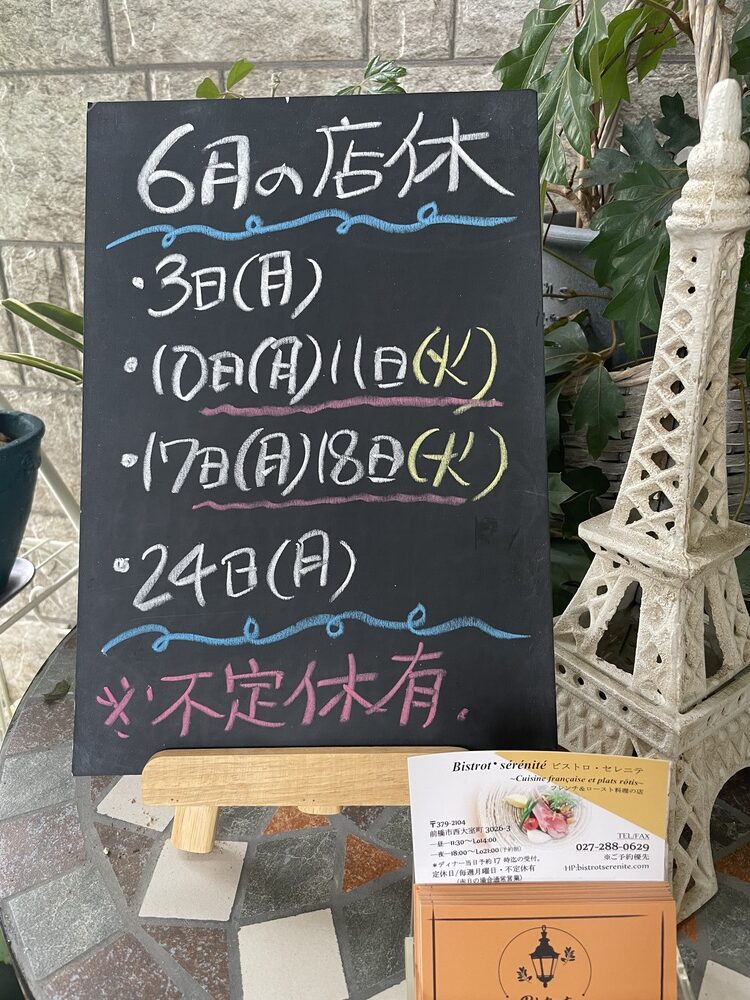 6月の店休
・3日(月)
・10日(月)11日(火)
・17日(月)18日(火)
・24日(月)
※不定休有.
Bistrot* sérénité ビストロ・セレニテ
~Cuisine française et plats rôtis~
フレンチ&ロースト料理の店
〒379-2104
前橋市西大室町 3026-3
―昼―11:30~Lo14:00
―夜―18:00~Lo21:00(予約制)
*ディナー当日予約 17 時迄の受付。
定休日/毎週月曜日・不定休有
(祝日の場合通常営業)
TEL/FAX
027-288-0629
※ご予約優先
HP:bistrotserenite.com